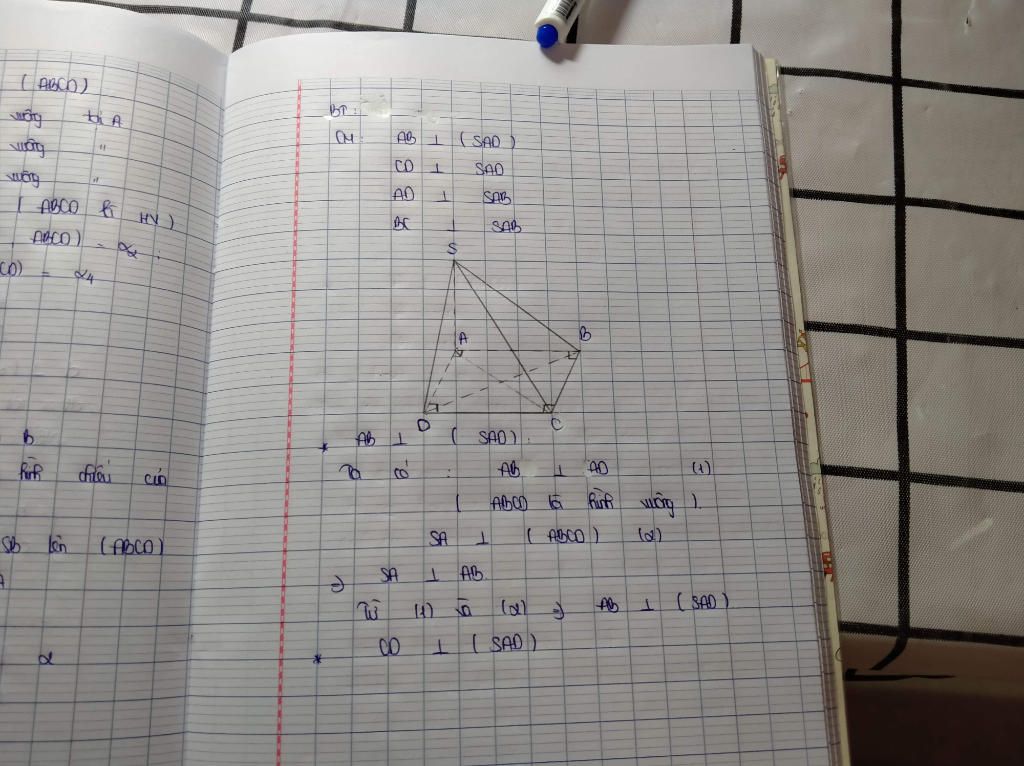 (ABCD)
vuông tại A
vuông "
vuông "
( ABCD là HV )
ABCD) =
CD) =
B
hình chiếu của
SB lên (ABCD)
BT:
CM: AB ⊥ (SAD)
CD ⊥ SAD
AD ⊥ SAB
BC ⊥ SAB
S
A
B
D
C
* AB ⊥ ( SAD) :
Ta có : AB ⊥ AD (1)
( ABCD là hình vuông ).
SA ⊥ ( ABCD) (2)
⇒ SA ⊥ AB.
Từ (1) và (2) ⇒ AB ⊥ (SAD)
* CD ⊥ (SAD)